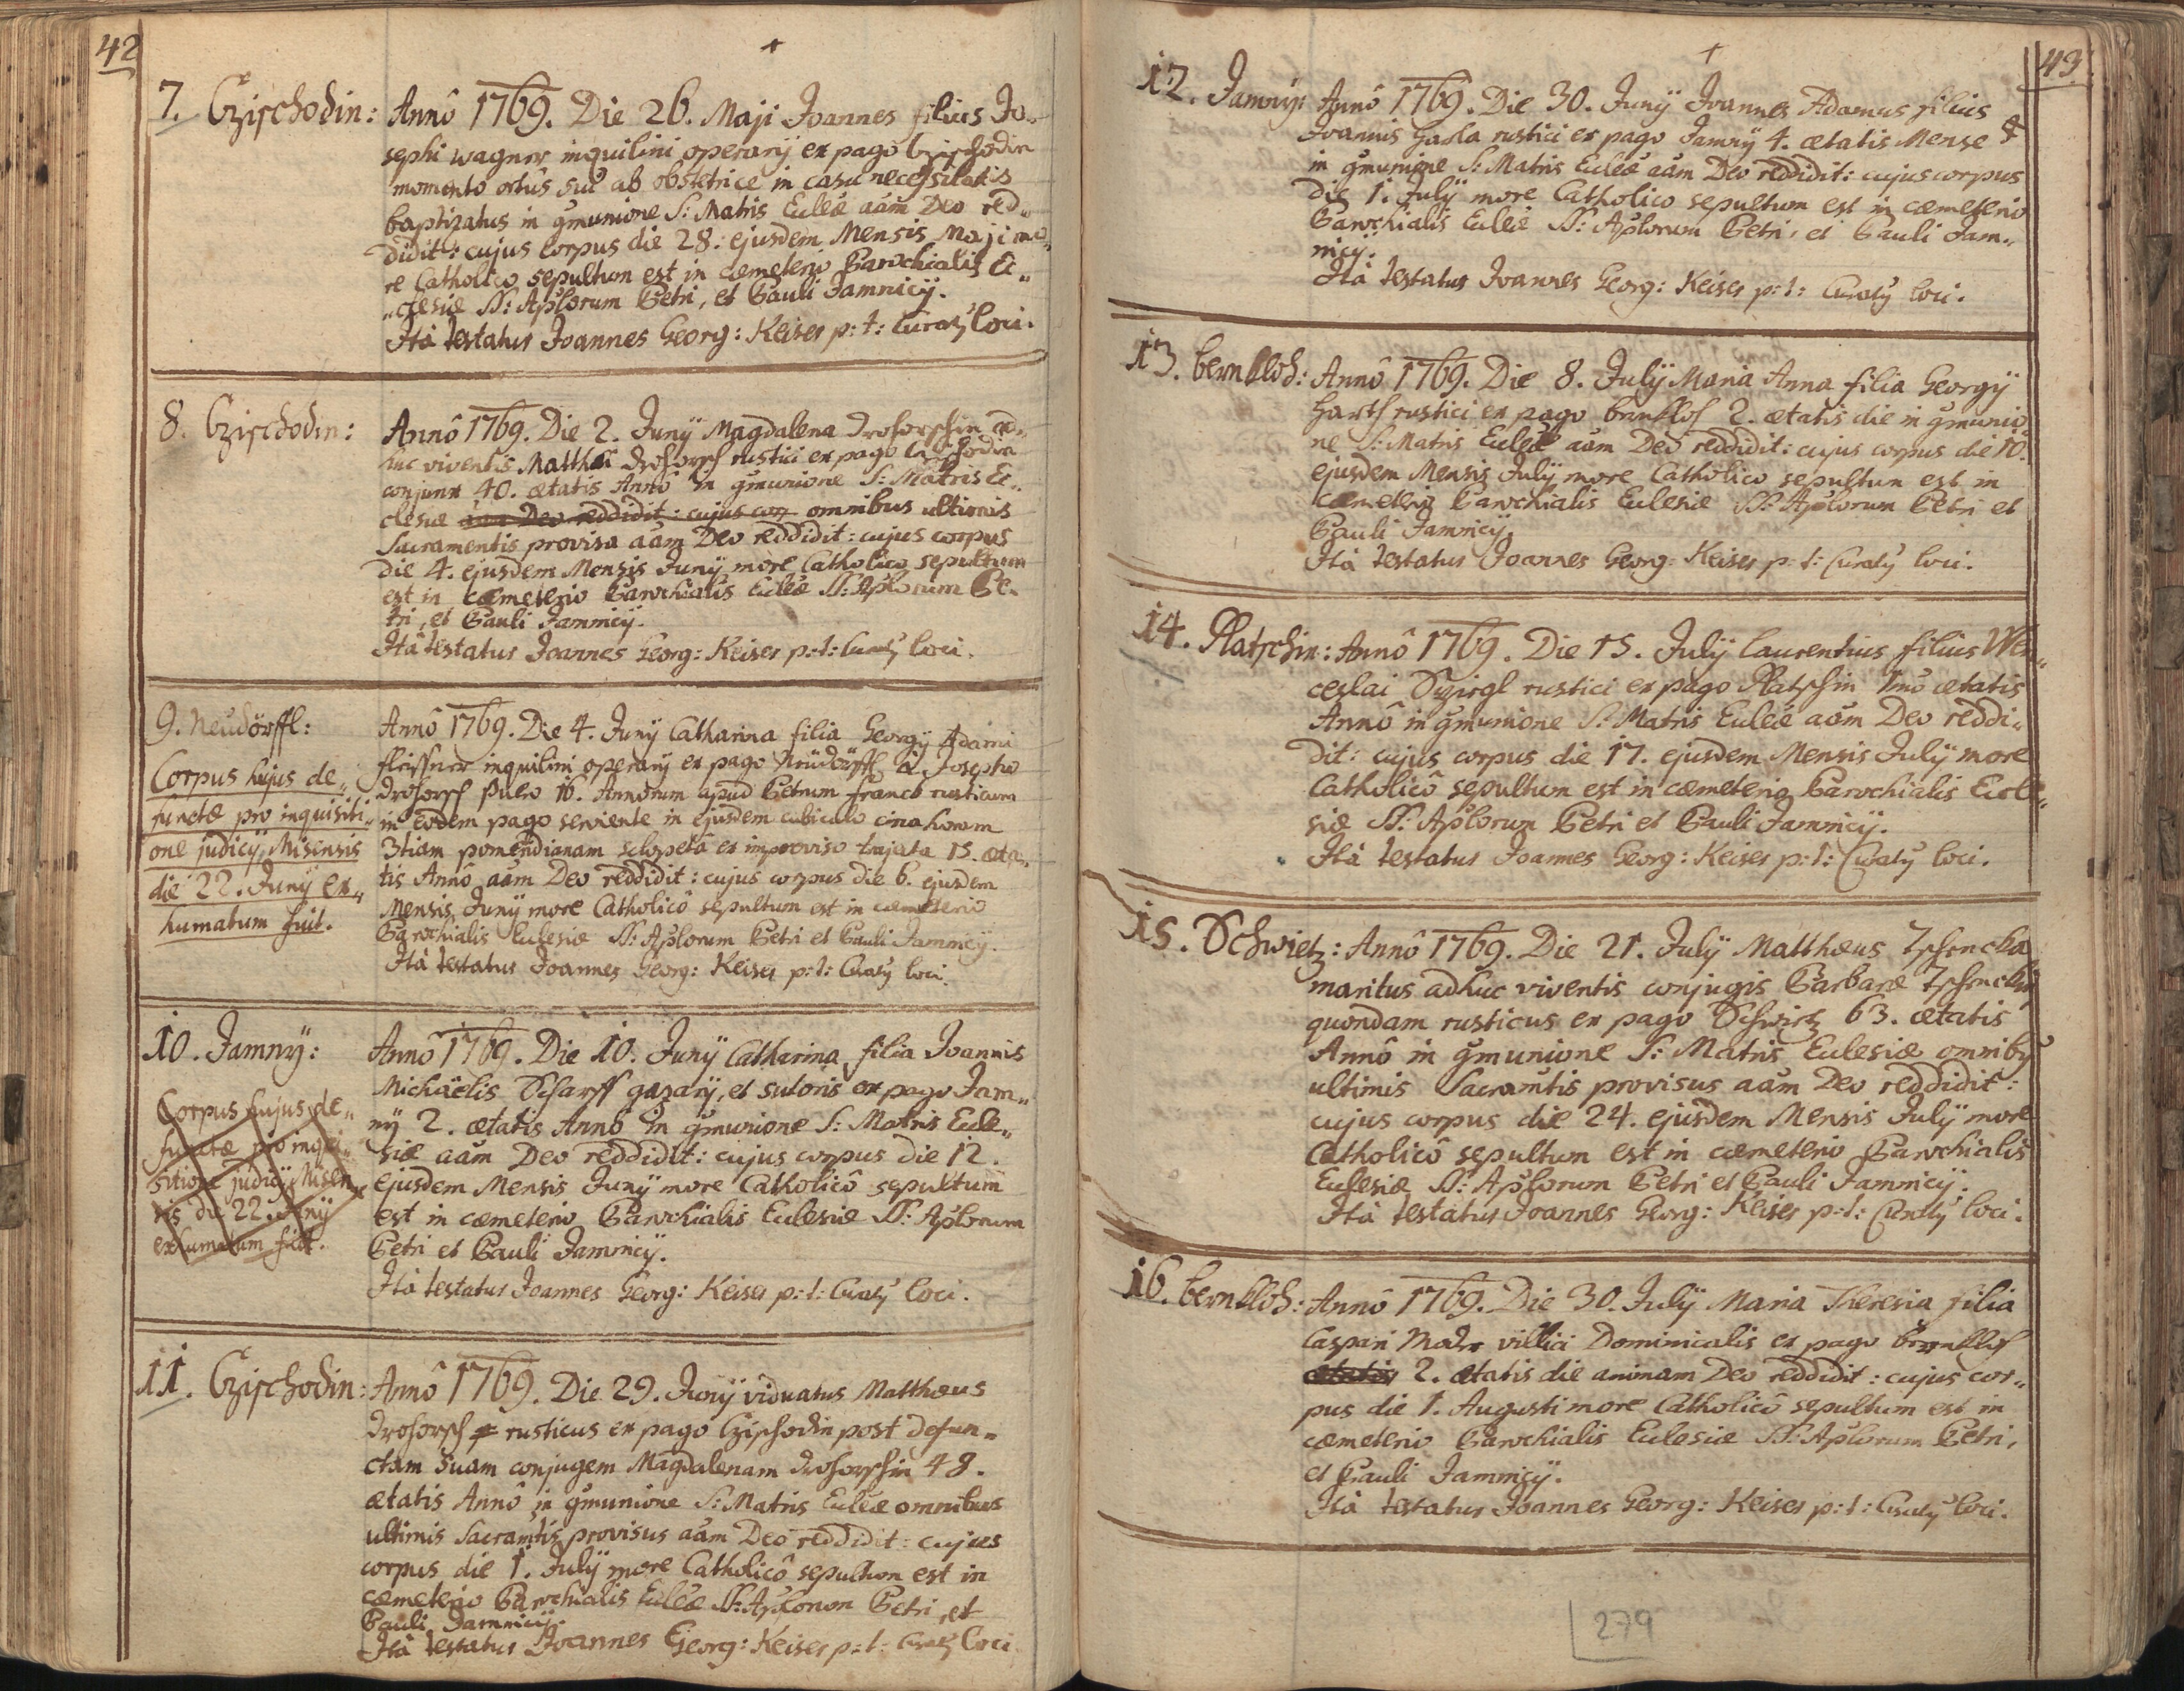 42
7. Czischodin: Annô 1769. Die 26. Maji Joannes filius Jo„
sephi Wagner inquilini operarÿ ex pago Czischodin
momento ortûs sui ab obstetrice in casu necessitatis
baptizatus in gmunione S: Matris Eccleæ aâm Deo red„
didit: cujus corpus die 28. ejusdem Mensis Maji mo„
re Catholico sepultum est in cæmeterio Parochialis Ec„
„clesiæ SS: Aplorum Petri, et Pauli Jamnicÿ.
Ità testatus Joannes Georg: Keiser p: t: Curatꝰ loci.
8. Czischodin: Annô 1769. Die 2. Junÿ Magdalena Drohorschin ad„
huc viventis Matthæi Drohorsch rustici ex pago Czischodin
conjunx 40. ætatis Annô in gmunione S: Matris Ec„
clesiæ aâm Deo reddidit: cujus cor omnibus ultimis
Sacramentis provisa aâm Deo reddidit: cujus corpus
die 4. ejusdem Mensis Junÿ more Catholico sepultum
est in cæmeterio Parochialis Eccleæ SS: Aplorum Pe„
tri, et Pauli Jamnicÿ.
Ità testatus Joannes Georg: Keiser p: t: Curatꝰ loci.
9. Neüdörffl: Annô 1769. Die 4. Junÿ Catharina filia Georgÿ Adami
Fleissner inquilini operarÿ ex pago Neüdörffl à Josepho
Drohorsch puero 16. Annorum apud Petrum Franck rusticum
in eodem pago serviente in ejusdem cubiculo circa horam
3tiam pomeridianam sclopeta ex improviso trajecta 15. æta„
tis Annô aâm Deo reddidit: cujus corpus die 6. ejusdem
Mensis Junÿ more Catholicô sepultum est in cæmeterio
Parochialis Ecclesiæ SS: Aplorum Petri et Pauli Jamnicÿ.
Ità testatus Joannes Georg: Keiser p: t: Curatꝰ loci.
Corpus hujus de„
functæ pro inquisiti„
one judicÿ Misensis
die 22. Junÿ ex„
humatum fuit.
10. Jamnÿ: Annô 1769. Die 10. Junÿ Catharina filia Joannis
Michäelis Scharff gazarÿ, et sutoris ex pago Jam„
nÿ 2. ætatis Annô in gmunione S: Matris Eccle„
siæ aâm Deo reddidit: cujus corpus die 12.
ejusdem Mensis Junÿ more Catholicô sepultum
est in cæmeterio Parochialis Ecclesiæ SS: Aplorum
Petri et Pauli Jamnicÿ.
Ità testatus Joannes Georg: Keiser p: t: Curatꝰ loci.
Corpus hujus de„
functæ pro inqui„
sitione judicÿ Misen„
sis die 22. Junÿ
exhumatum fuit.
11. Czischodin: Annô 1769. Die 29. Junÿ viduatus Matthæus
Drohorsch rusticus ex pago Czischodin post defun„
ctam suam conjugem Magdalenam Drohorschin 48.
ætatis Annô in gmunione S: Matris Eccleæ omnibus
ultimis Sacramtis provisus aâm Deo reddidit: cujus
corpus die 1. Julÿ more Catholicô sepultum est in
cæmeterio Parochialis Eccleæ SS: Aplorum Petri, et
Pauli Jamnicÿ.
Ità testatus Joannes Georg: Keiser p: t: Curatꝰ loci
43
12. Jamnÿ: Annô 1769. Die 30. Junÿ Joannes Adamus filius
Joannis Hacka rustici ex pago Jamnÿ 4. ætatis Mense
in gmunione S: Matris Eccleæ aâm Deo reddidit: cujus corpus
die 1. Julÿ more Catholico sepultum est in cæmeterio
Parochialis Eccleæ SS: Aplorum Petri, et Pauli Jam„
nicÿ.
Ità testatus Joannes Georg: Keiser p: t: Curatꝰ loci.
13. Bernkloh: Annô 1769. Die 8. Julÿ Maria Anna filia Georgÿ
Hartl rustici ex pago Bernkloh 2. ætatis die in gmunio„
ne S: Matris Eccleæ aâm Deo reddidit: cujus corpus die 10.
ejusdem Mensis Julÿ more Catholico sepultum est in
cæmeterio Parochialis Ecclesiæ SS: Aplorum Petri et
Pauli Jamnicÿ.
Ità testatus Joannes Georg: Keiser p: t: Curatꝰ loci.
14. Platschin: Annô 1769. Die 15. Julÿ Laurentius filius Wen„
ceslai rustici ex pago Platschin 1mô ætatis
Annô in gmunione S: Matris Eccleæ aâm Deo reddi„
dit: cujus corpus die 17. ejusdem Mensis Julÿ more
Catholicô sepultum est in cæmeterio Parochialis Eccle„
siæ SS: Aplorum Petri et Pauli Jamnicÿ.
Ità testatus Joannes Georg: Keiser p: t: Curatꝰ loci.
15. Schwietz: Annô 1769. Die 21. Julÿ Matthæus Tschencka
maritus adhuc viventis conjugis Barbaræ
quondam rusticus ex pago Schwietz 63. ætatis
Annô in gmunione S: Matris Ecclesiæ omnibꝰ
ultimis Sacramtis provisus aâm Deo reddidit:
cujus corpus die 24. ejusdem Mensis Julÿ more
Catholicô sepultum est in cæmeterio Parochialis
Ecclesiæ SS: Aplorum Petri et Pauli Jamnicÿ.
Ità testatus Joannes Georg: Keiser p: t: Curatꝰ loci.
16. Bernkloh: Annô 1769. Die 30. Julÿ Maria Theresia filia
Caspari villici Dominicalis ex pago Bernkloh
ætatis 2. ætatis die animam Deo reddidit: cujus cor„
pus die 1. Augusti more Catholicô sepultum est in
cæmeterio Parochialis Ecclesiæ SS: Aplorum Petri,
et Pauli Jamnicÿ.
Ità testatus Joannes Georg: Keiser p: t: Curatꝰ loci.
279